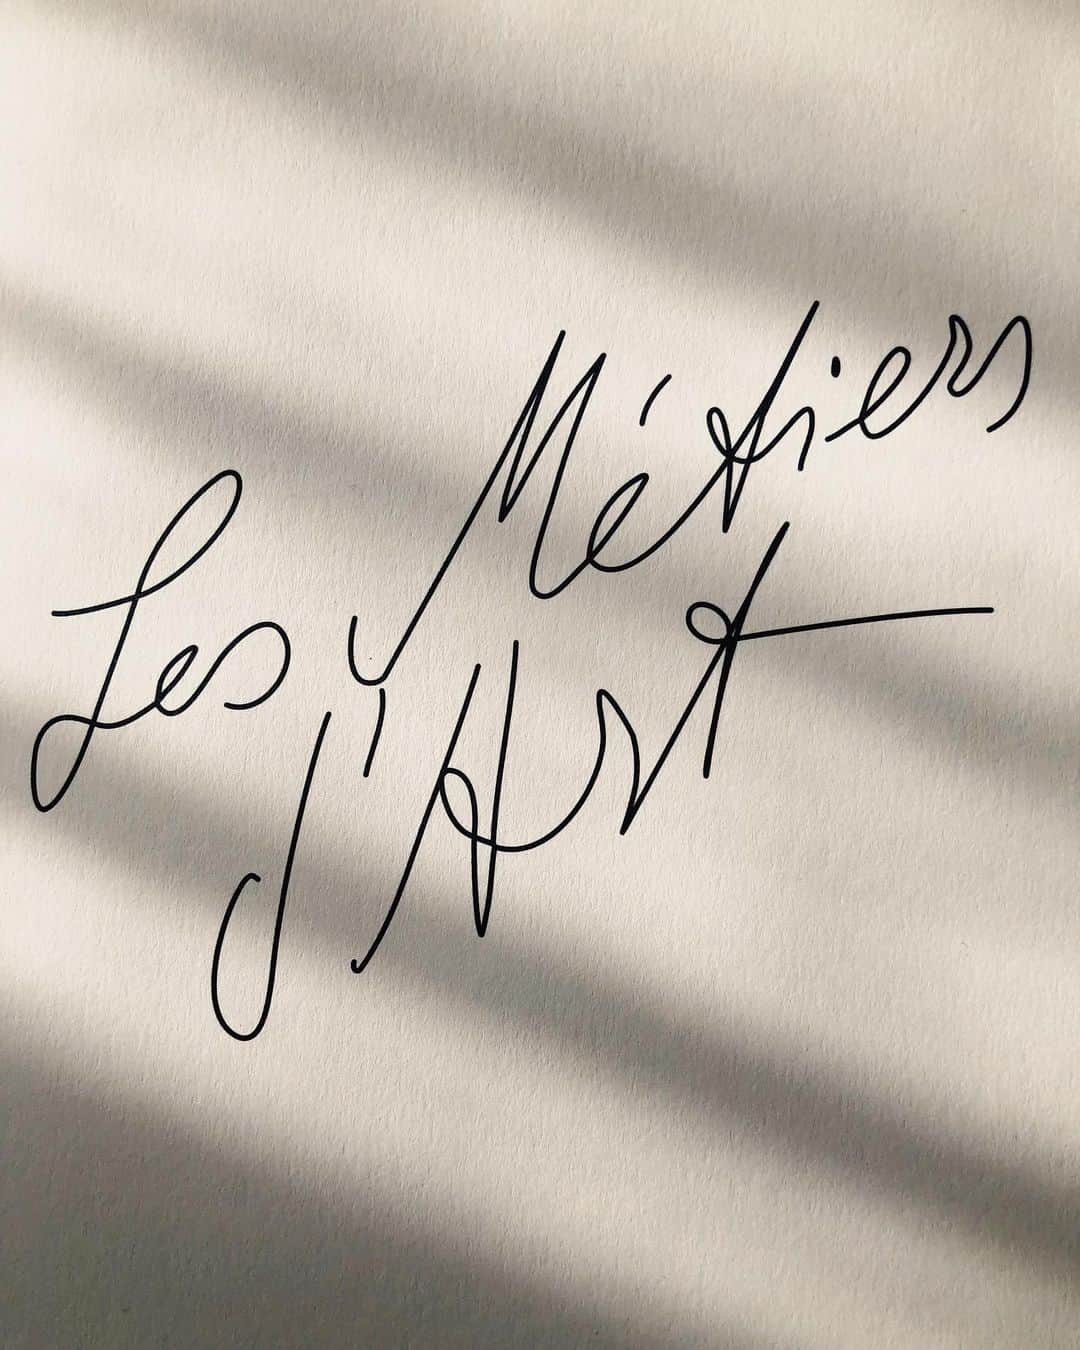 Les Métiers
d'Art